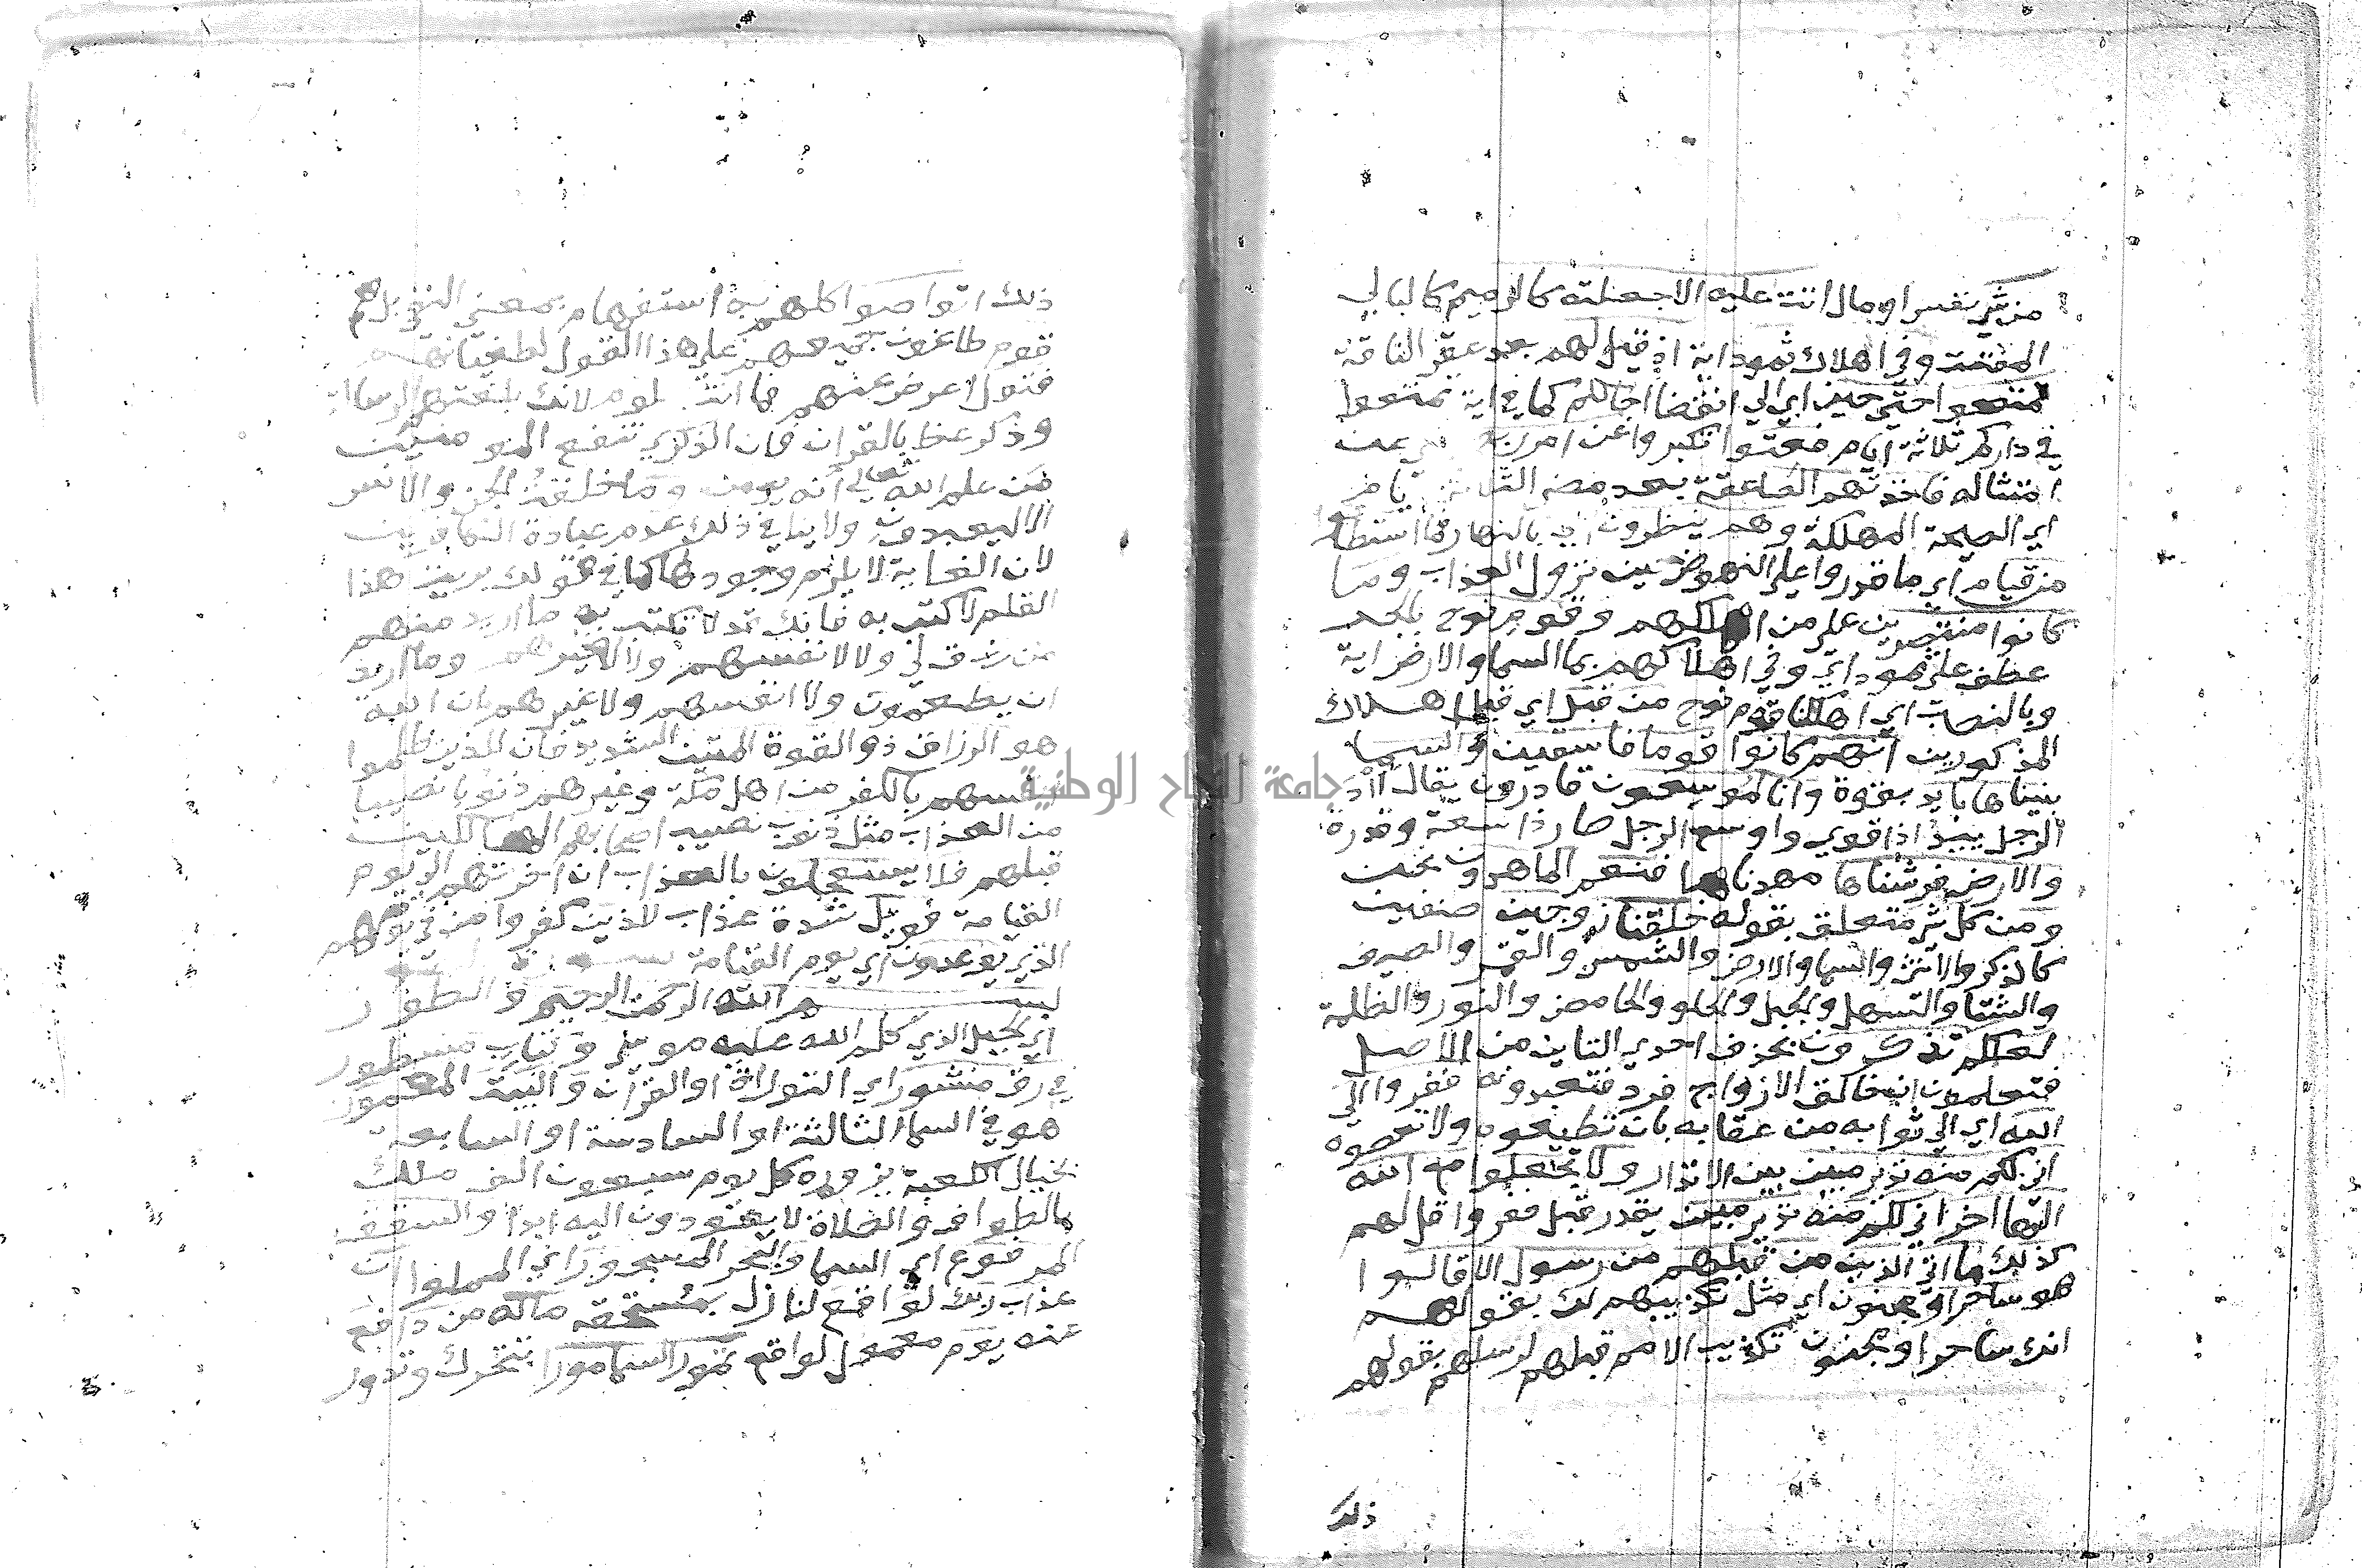 من شي نفس او مال اتت عليه الا جعلته كالرميم كالبالي
المفتت وفي اهلاك ثمود اية اذ قيل لهم بعد عقر الناقة
تمتعوا حتي حين اي الي انقضا اجالكم كما في اية تمتعوا
في داركم ثلاثة ايام فعتوا تكبروا عن امر ربهم عن
امتثاله فاخذتهم الصاعقة بعد مضي الثلاثة ايام
اي الصيحة المهلكة وهم ينظرون اي بالنهار فما استطاعوا
من قيام اي ما قدروا علي النهوض حين نزول العذاب وما
كانوا منتصرين علي من اهلكهم وقوم نوح بالجر
عطف علي ثمود اي وفي اهلاكهم بما السما والارض اية
وبالنصب اي اهلكنا قوم نوح من قبل اي قبل اهلاك
المذكورين انهم كانوا قوما فاسقين والسما
بنيناها بايد بقوة وانا لموسعون قادرون يقال اد
الرجل يييد اذا قوي واوسع الرجل صار ذا سعة وقدرة
والارض فرشناها مهدناها فنعم الماهدون نحن
ومن كل شي متعلق بقوله خلقنا زوجين صنفين
كالذكر والانثي والسما والارض والشمس والقمر والصيف
والشتا والسهل والجبل والحلو والحامض والنور والظلمة
لعلكم تذكرون بحذف احدي التاين من الاصل
فتعلمون ان خالق الازواج فرد فتعبدونه ففروا الي
الله اي الي ثوابه من عقابه بان تطيعوه ولا تعصوه
اني لكم منه نذير مبين بين الانذار ولا تجعلوا مع الله
الها اخر اني لكم منه نذير مبين يقدر قبل ففروا قل لهم
كذلك ما اتي الذين من قبلهم من رسول الا قالوا
هو ساحر او مجنون اي مثل تكذيبهم لك بقولهم
انك ساحر او مجنون تكذيب الامم قبلهم لرسلهم بقولهم
ذلك
ذلك اتواصوا كلهم به استفهام بمعني النفي بل هم
قوم طاغون جمعهم علي هذا القول لطغيانهم
فتول اعرض عنهم فما انت بلوم لانك بلغتهم الرسالة
وذكر عظ بالقران فان الذكري تنفع المومنين
من علم الله تعالي انه يومن وما خلقت الجن والانس
الا ليعبدون ولا ينافي ذلك عدم عبادة الكافرين
لان الغاية لا يلزم وجودها كما في قولك بريت هذا
القلم لاكتب به فانك قد لا تكتب به ما اريد منهم
من رزق لي ولا لانفسهم ولا لغيرهم وما اريد
ان يطعمون ولا انفسهم ولا غيرهم ان الله
هو الرزاق ذو القوة المتين الشديد فان للذين ظلموا
انفسهم بالكفر من اهل مكة وغيرهم ذنوبا نصيبا
من العذاب مثل ذنوب نصيب اصحابهم الهالكين
قبلهم فلا يستعجلون بالعذاب ان اخرتهم الي يوم
القيامة فويل شدة عذاب للذين كفروا من يومهم
الذي يوعدون اي يوم القيامة
بسم الله الرحمن الرحيم والطور
اي الجبل الذي كلم الله عليه موسي وكتاب مسطور
في رق منشور اي التوراة او القران والبيت المعمور
هو في السما الثالثة او السادسة او السابعة
بحيال الكعبة يزوره كل يوم سبعون الف ملك
بالطواف والصلاة لا يعودون اليه ابدا والسقف
المرفوع اي السما والبحر المسجور اي المملوا ان
عذاب ربك لواقع لنازل بمستحقه ماله من دافع
عنه يوم معمول لواقع تمور السما مورا تتحرك وتدور
جامعة النجاح الوطنية